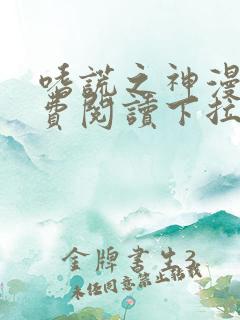 嗜謊之神漫
費閱讀下拉
金牌書生3
未經同意禁止轉載